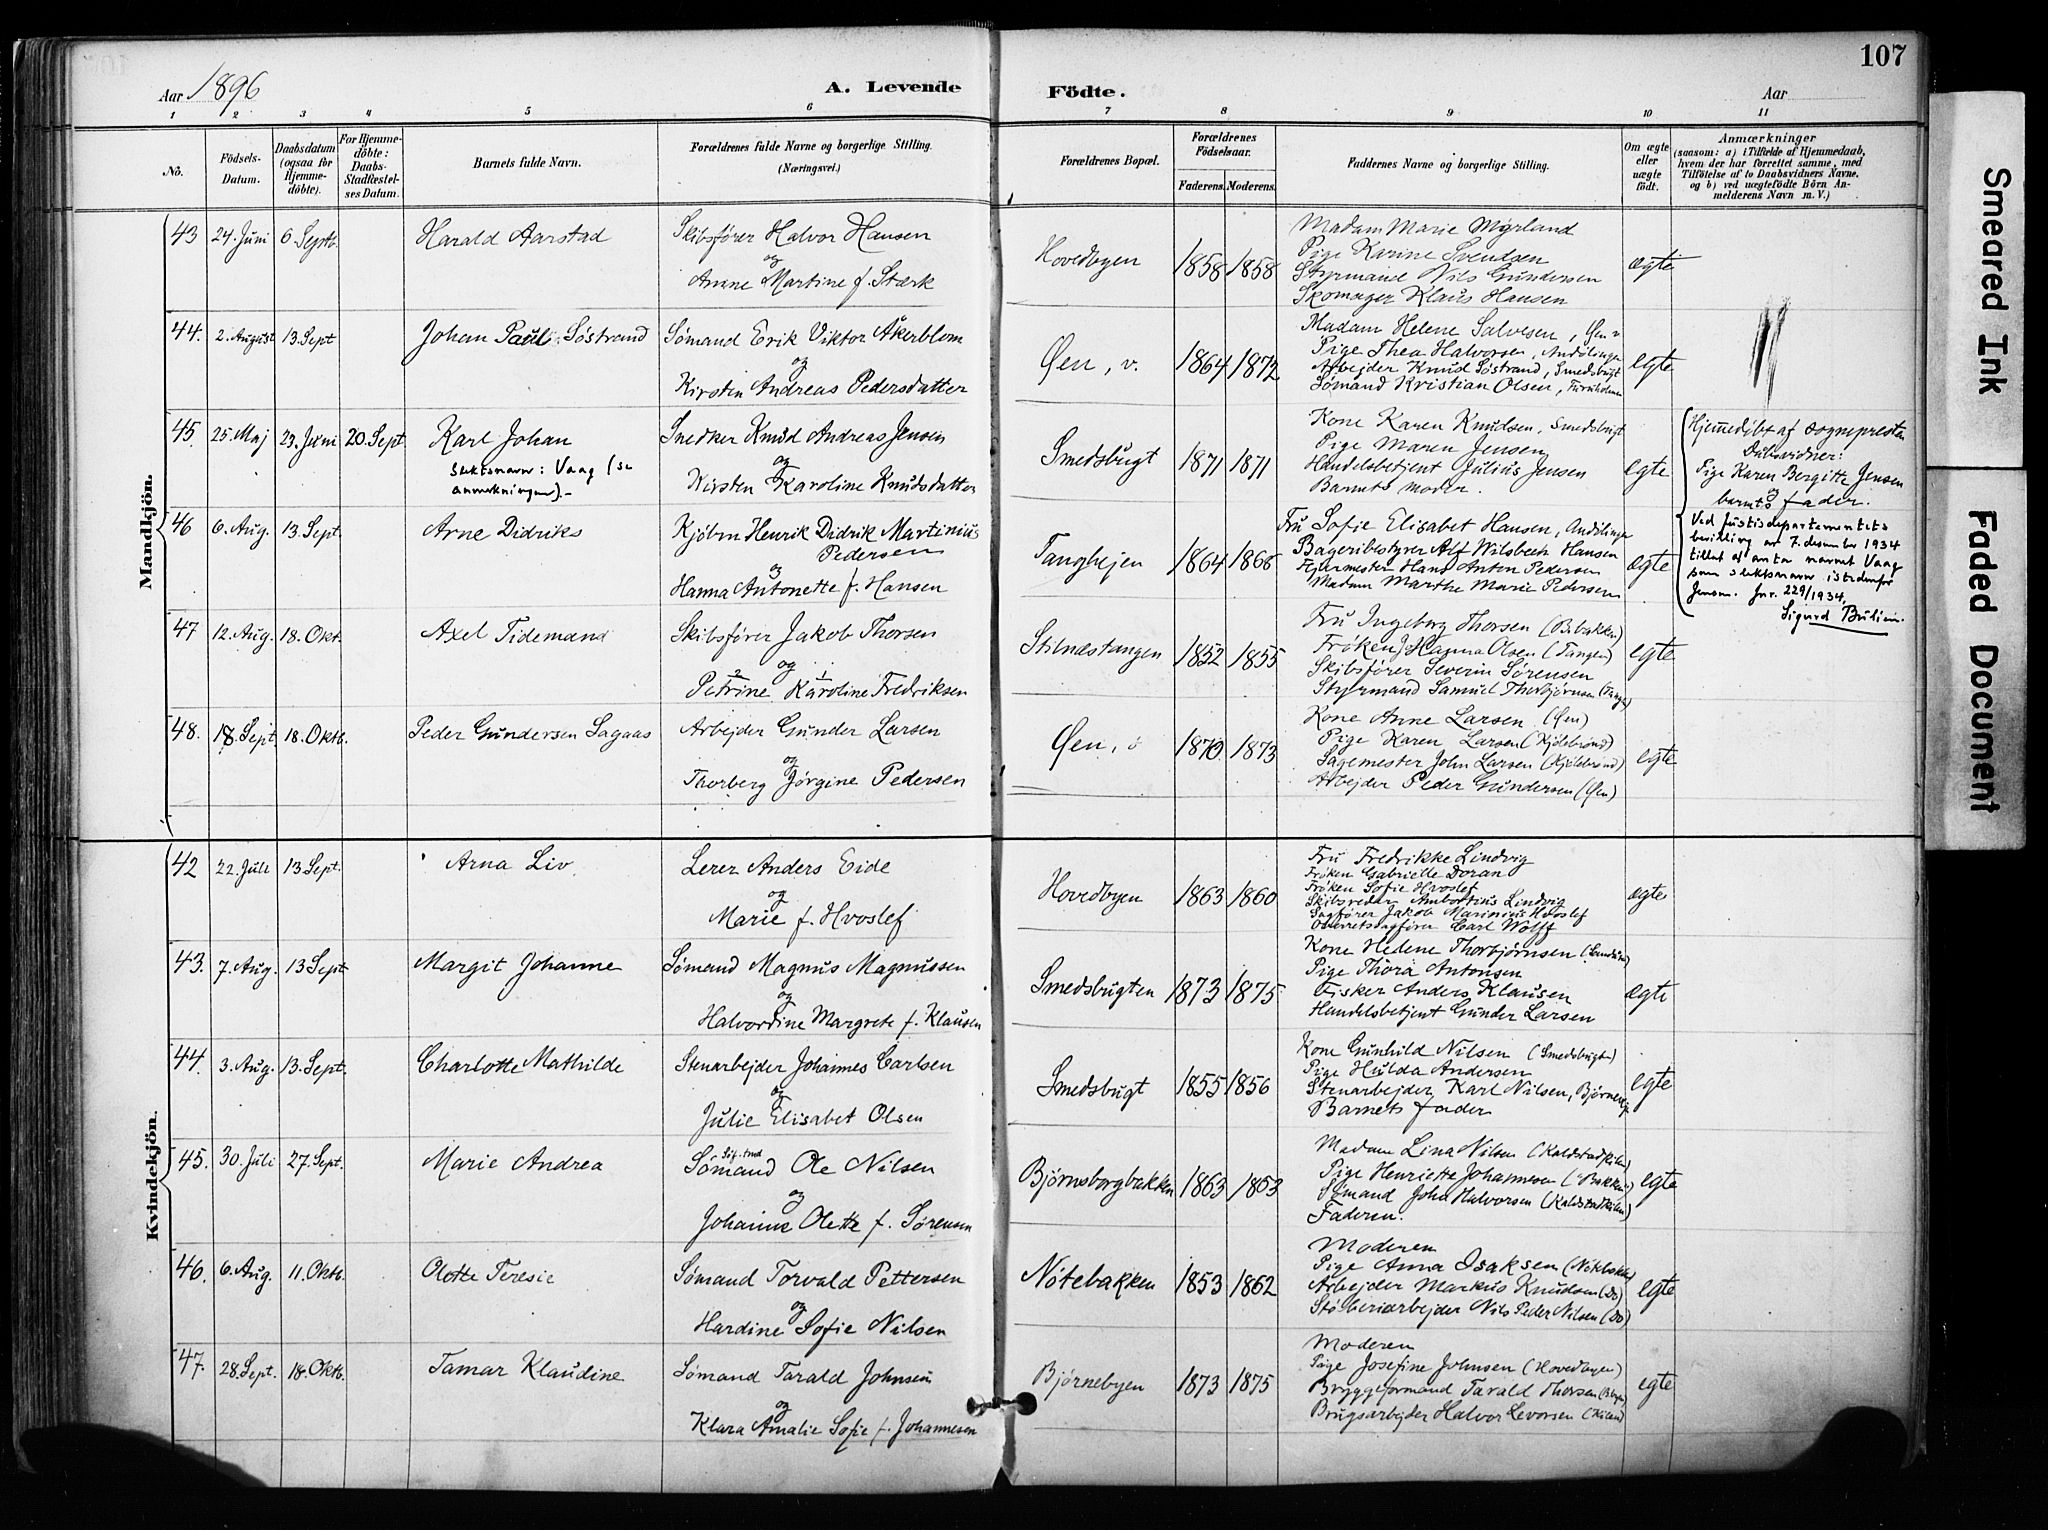 107
Aar 1896
A. Levende
Födte.
Aar
1 2 3 4 5 6 7 8 9 10 11
No.
Födsels-Datum.
Daabsdatum (ogsaa for Hjemme-döbte).
For Hjemme-döbte: Daabs-Stadfæstel-ses Datum.
Barnets fulde Navn.
Forældrenes fulde Navne og borgerlige Stilling. (Næringsvei.)
Forældrenes Bopæl.
Forældrenes Födselsaar.
Faderens. Moderens.
Faddernes Navne og borgerlige Stilling.
Om ægte eller uægte født.
Anmærkninger
(saasom: a) i Tilfælde af Hjemmedaab, hvem der har forrettet samme, med Tilföielse af to Daabsvidners Navne, og b) ved uægtefödte Börn An-melderens Navn m. V.)
Mandkjön.
43 24. Juni 6. Septb. Harald Aarstad
Skibsfører Halvor Hansen
og
Anne Martine f. Stærk
Hovedbyen 1858 1858
Madam Marie Myrland
Pige Karine Svendsen
Styrmand Nils Gundersen
Skomager Klaus Hansen
ægte
44. 2. August 13. Sept Johan Paul Søstrand
Sømand Erik Viktor Åkerblom
og
Kirstin Andreas Pedersdatter
Øen, v. 1864 1872
Madam Helene Salvesen, Øen v
Pige Thea Halvorsen,
Arbejder Knud Søstrand, Smedsbugt
Sømand Kristian Olsen,
egte
45. 25. Maj 23. Juni 20. Sept Karl Johan
Slektsnavn: Vaag (se
anmerkningen).-
Snedker Knud Andreas Jensen
og
Kirsten Karoline Knudsdatter
Smedsbugt 1871 1871
Kone Karen Knudsen, Smedsbugt
Pige Maren Jensen
Handelsbetjent Julius Jensen
Barnets moder.
egte
Hjemmedøbt af sognepresten
Dåbsvidner:
Pige Karen Bergitte Jensen
og
barnets fader.
Ved Justisdepartementets
bevilling av 7. desember 1934
tillat at anta navnet Vaag
som slektsnavn istedenfor
Jensen. Jnr. 229/1934.
Sigurd Bulien.
46 6. Aug. 13. Sept. Arne Didriks
Kjøbm Henrik Didrik Martinius
Pedersen
og
Hanna Antonette f. Hansen
Tanghejen 1864 1866
Fru Sofie Elisabet Hansen,
Bageribestyrer Alf Wilsbech Hansen
Fyrmester Hans Anton Pedersen
Madam Marthe Marie Pedersen
ægte
47 12. Aug. 18. Okt. Axel Tidemand
Skibsfører Jakob Thorsen
og
2 1
Petrine Karoline Fredriksen
Stilnæstangen 1852 1855
Fru Ingeborg Thorsen (Bibakken)
Frøken Hanna Olsen (Tangen)
Skibsfører Severin Sørensen
Styrmand Samuel Thorbjørnsen
egte
48. 18. Sept 18. Oktb. Peder Gundersen Sagaas
Arbejder Gunder Larsen
og
Thorberg Jørgine Pedersen
Øen, ø 1870 1873
Kone Anne Larsen (Øen)
Pige Karen Larsen (Kjölebrønd)
Sagemester John Larsen (Kjölebrønd)
Arbejder Peder Gundersen (Øen)
egte
Kvindekjön.
42 22. Juli 13 Sept. Arna Liv
Lerer Anders Eide
og
Marie f. Hvoslef
Hovedbyen 1863 1860
Fru Fredrikke Lindvig
Frøken Gabrielle Doran
Frøken Sofie Hvoslef
Skibsreder Ambortius Lindvig
Sagfører Jakob Marinius Hvoslef
Overretssagfører Carl Wolff
ægte
43. 7. Aug. 13 Sept Margit Johanne
Sømand Magnus Magnussen
og
Halvordine Margrete f. Klausen
Smedsbugten 1873 1875
Kone Hedene Thorbjørnsen
Pige Thora Antonsen
Fisker Anders Klausen
Handelsbetjent Gunder Larsen
ægte
44. 3. Aug. 13. Sept. Charlotte Mathilde
Stenarbejder Johannes Carlsen
og
Julie Elisabet Olsen
Smedsbugt 1855 1856
Kone Gunhild Nilsen (Smedsbugten)
Pige Hulda Andersen
Stenarbejder Karl Nilsen,
Barnets fader
egte
45. 30. Juli 27. Sept. Marie Andrea
Sømand Ole Nilsen
og
Johanne Olette f. Sørensen
Bjørnsborgbakken 1863 1863
Madam Lina Nilsen (Kalstadkilen)
Pige Henriette Johannesen
Sømand John Halvorsen (Kalstadkilen)
Faderen.
egte
46. 6. Aug. 11. Oktb. Olette Teresie
Sømand Torvald Pettersen
og
Hardine Sofie Nilsen
Nötebakken 1853 1862
Moderen
Pige Anna Isaksen (Nötebakken)
Arbejder Markus Knudsen (Do)
Støberiarbejder Nils Peder Nilsen (Do)
egte
47. 28. Sept. 18. Oktb. Tamar Klaudine
Sømand Tarald Johnsen
og
Klara Amalie Sofie f. Johannesen
Bjørnebyen 1873 1875
Moderen
Pige Josefine Johnsen (Hovedbyen)
Bryggeformand Tarald Thorsen
Brugsarbejder Halvor Levorsen (Kilen)
egte
Smeared Ink
Faded Document